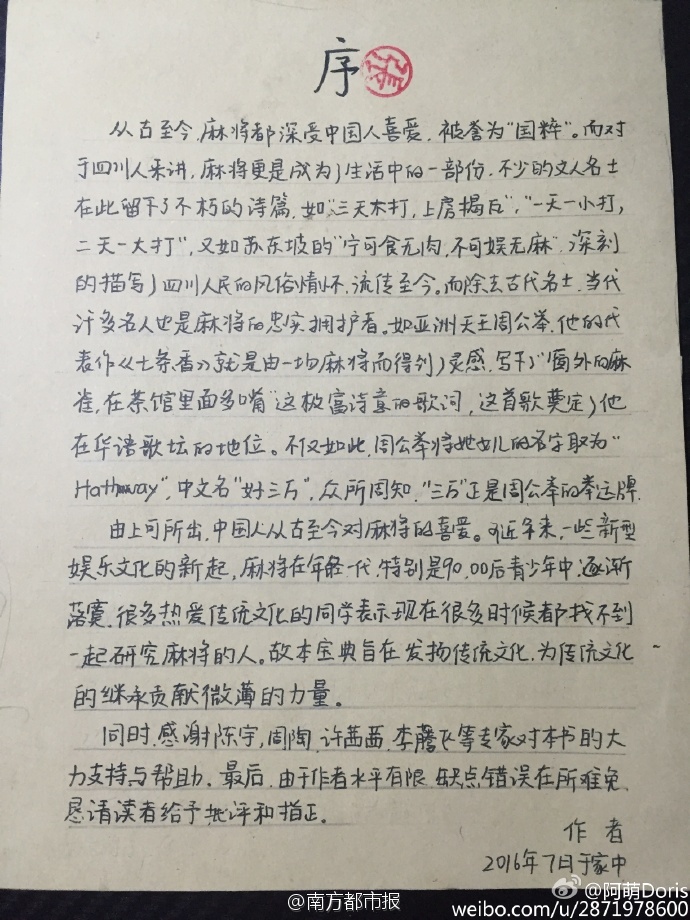 序
从古至今,麻将都深受中国人喜爱,被誉为"国粹"。而对
于四川人来讲,麻将更是成为了生活中的一部份,不少的文人名士
在此留下了不朽的诗篇,如"三天不打,上房揭瓦","一天一小打,
二天一大打",又如苏东坡的"宁可食无肉,不可娱无麻",深刻
的描写了四川人民的风俗情怀,流传至今。而除去古代名士,当代
许多名人也是麻将的忠实拥护者。如亚洲天王周公举,他的代
表作《七条香》就是由一场麻将而得到了灵感,写下了"窗外的麻
雀,在茶馆里面多嘴"这极富诗意的歌词,这首歌奠定了他
在华语歌坛的地位。不仅如此,周公举将她女儿的名字取为"
Hathaway",中文名"好三万",众所周知,"三万"正是周公举的幸运牌.
由上可所出,中国人从古至今对麻将的喜爱。近年来,一些新型
娱乐文化的新起,麻将在年轻一代,特别是90,00后青少年中,逐渐
落寞,很多热爱传统文化的同学表示现在很多时候都找不到
一起研究麻将的人。故本宝典旨在发扬传统文化,为传统文化
的继承贡献微薄的力量。
同时,感谢陈宇,周陶,许茜茜,李腾飞等专家对本书的大
力支持与帮助。最后,由于作者水平有限,缺点错误在所难免,
恳请读者给予批评和指正。
作者
2016年7日于家中
@南方都市报
@阿萌Doris
weibo.com/u/2871978600